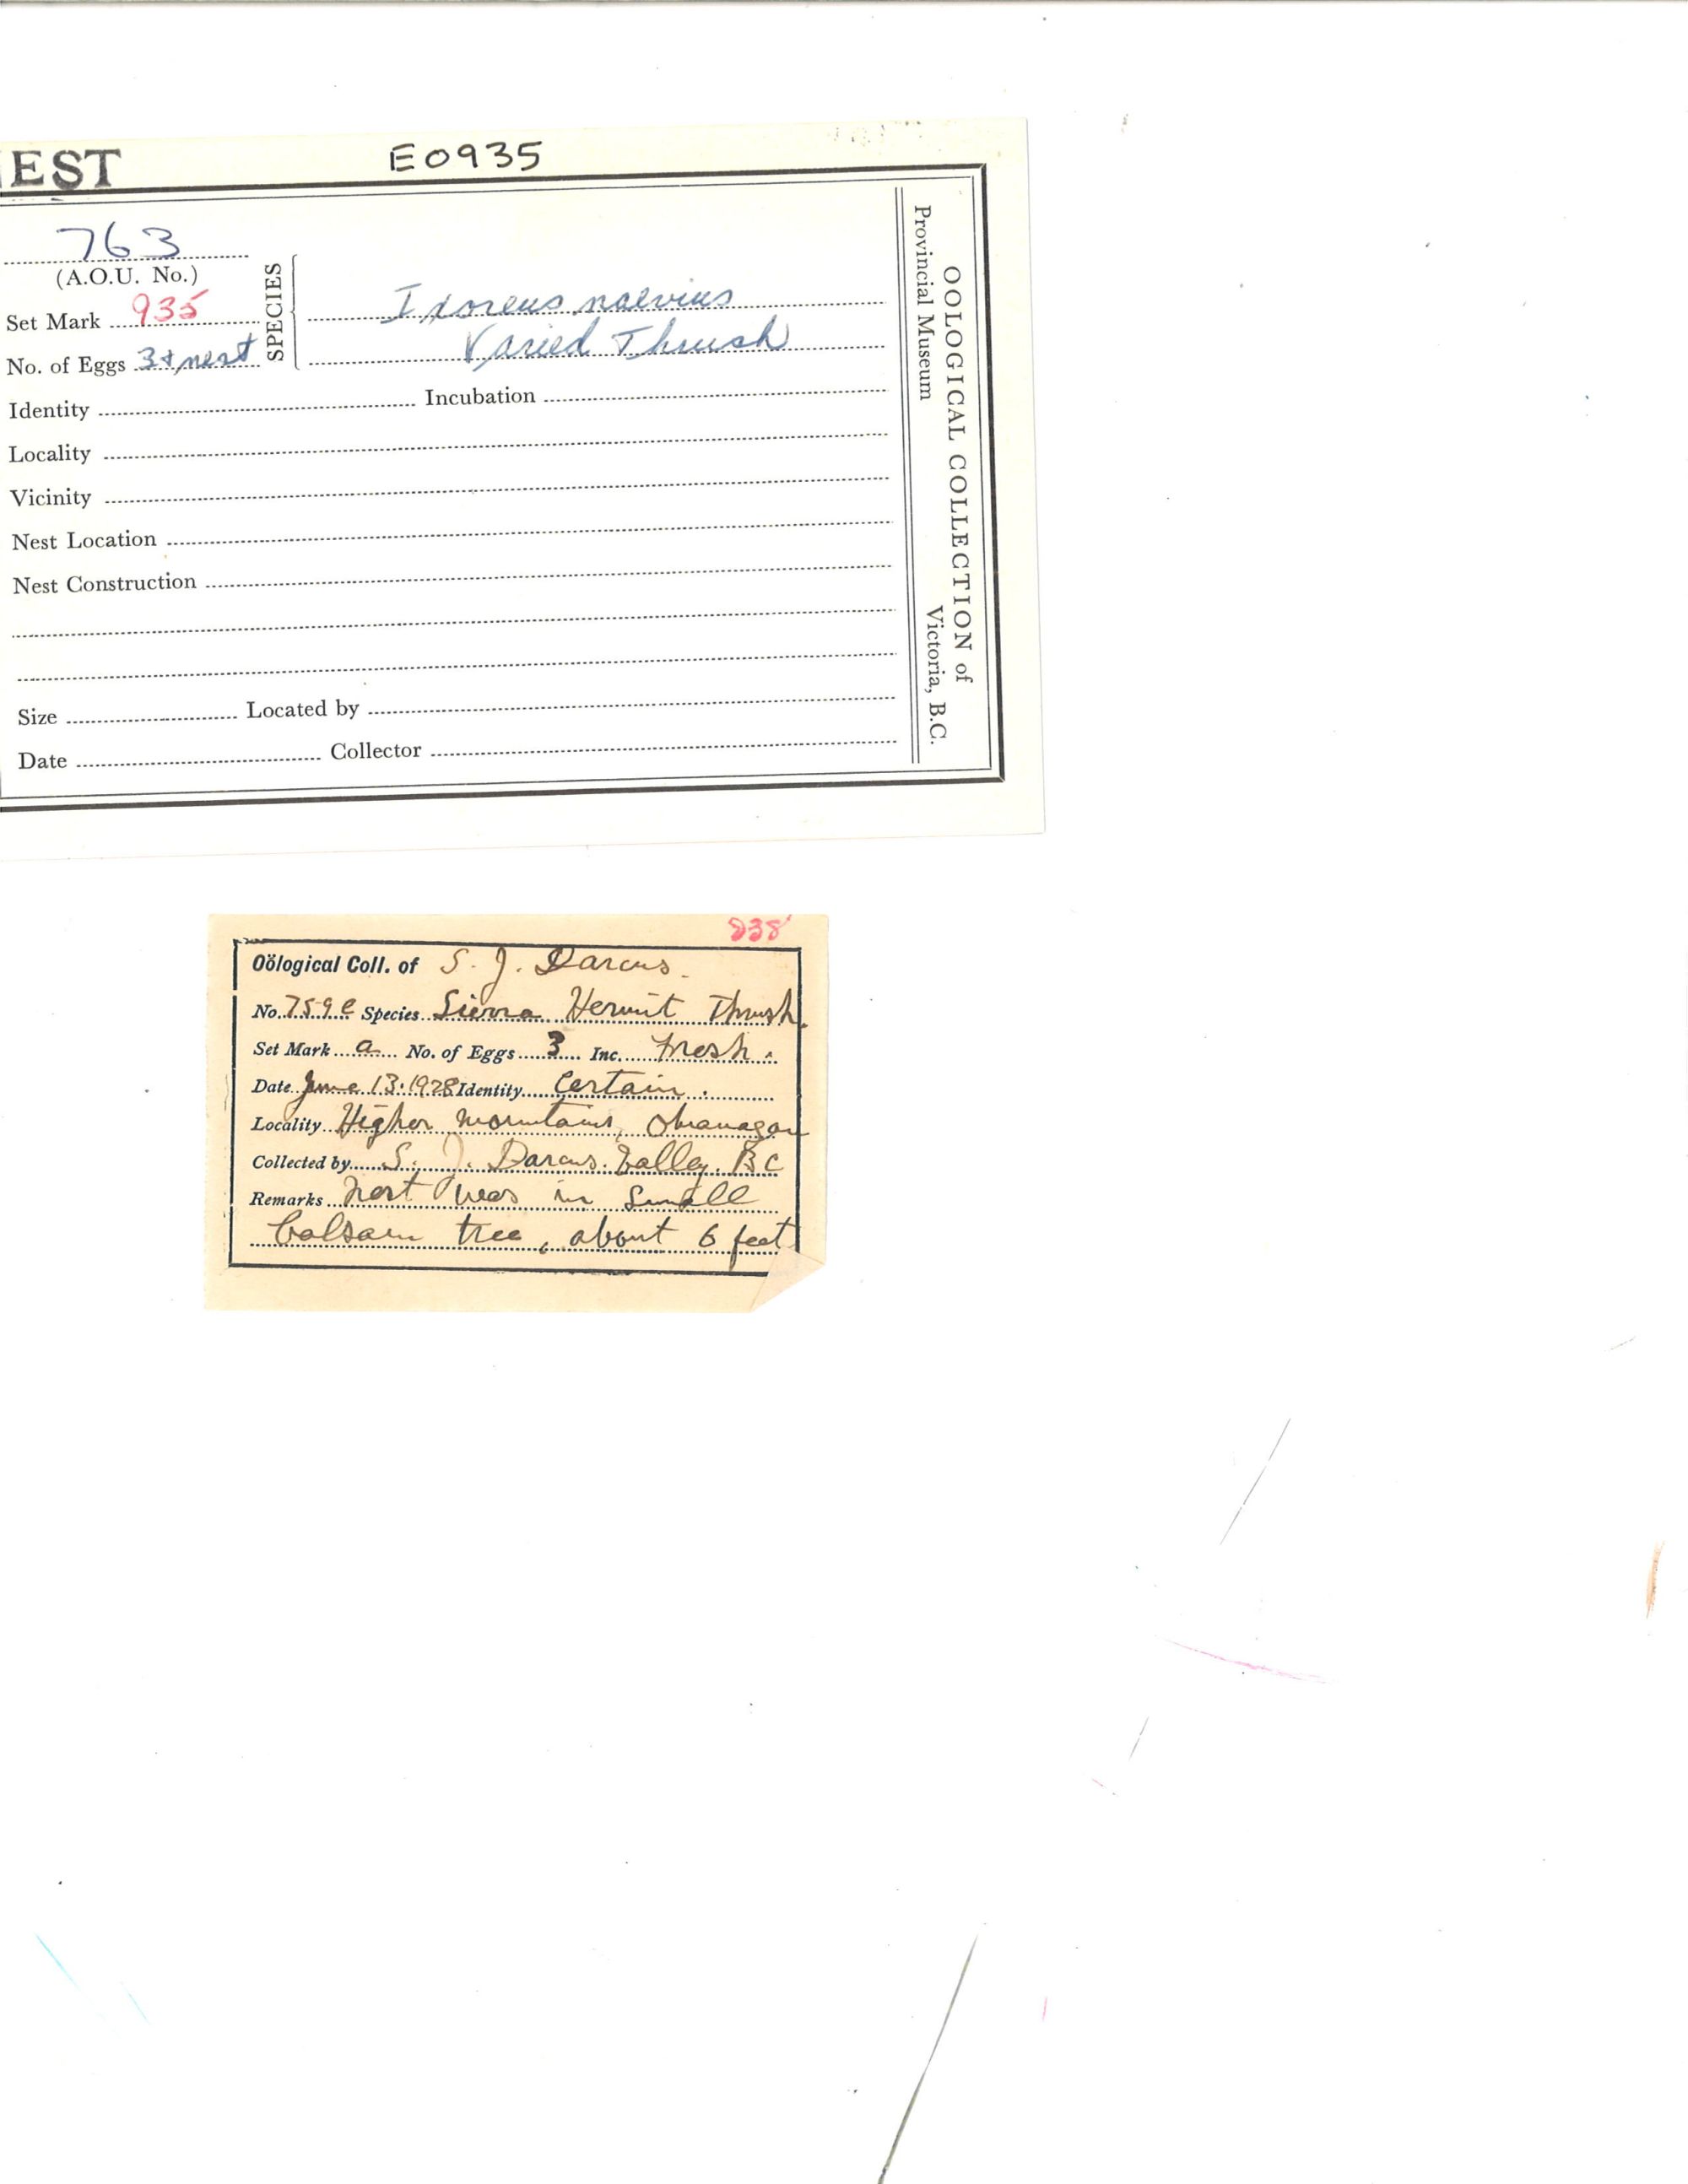 EST
E0935
763
(A.O.U. No.)
Set Mark 935
No. of Eggs 3 + nest
SPECIES
Ixoreus naevius
Varied Thrush
Identity Incubation
Locality
Vicinity
Nest Location
Nest Construction
Size Located by
Date Collector
OOLOGICAL COLLECTION of
Provincial Museum Victoria, B.C.
Oölogical Coll. of S. J. Darcus.
No. 759e Species Sierra Hermit Thrush.
Set Mark a No. of Eggs 3 Inc. Fresh.
Date June 13. 1928 Identity Certain.
Locality Higher mountains, Okanagan
Collected by S. J. Darcus. Valley. BC
Remarks Nest was in small
balsam tree, about 6 feet